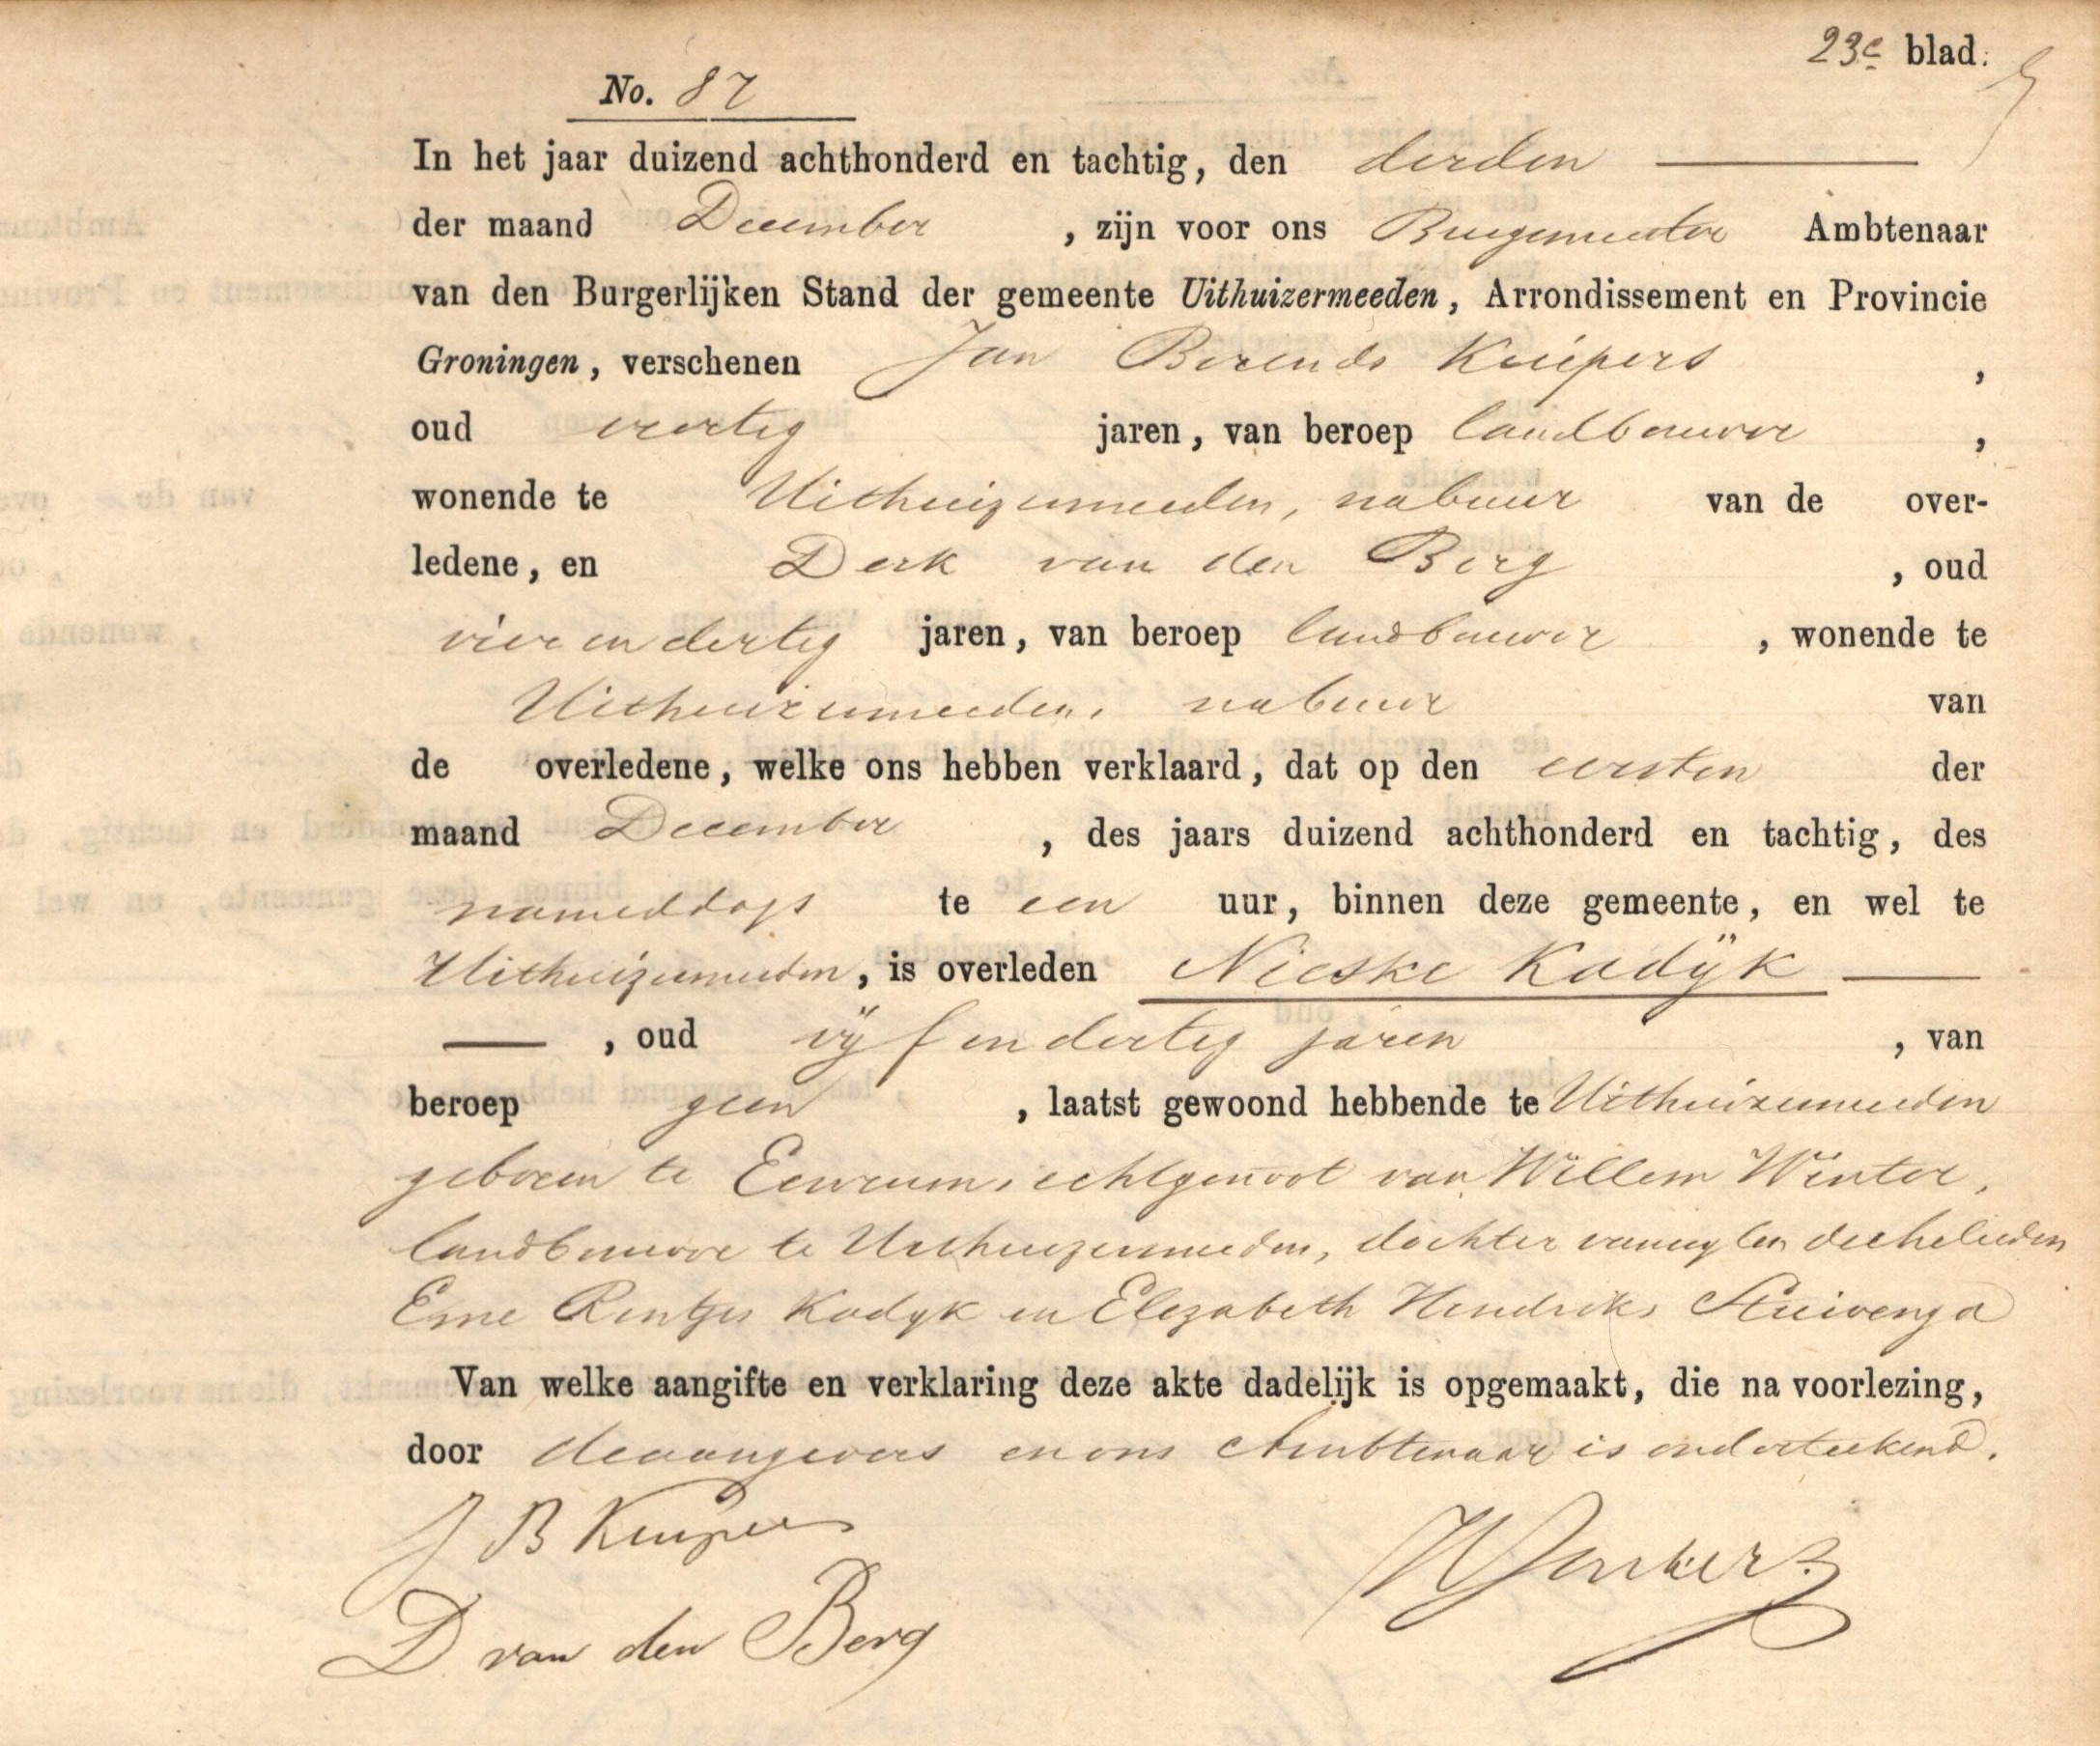 23e blad.
No. 87
In het jaar duizend achthonderd en tachtig, den derden
der maand December, zijn voor ons Burgemeester Ambtenaar
van den Burgerlijken Stand der gemeente Uithuizermeeden, Arrondissement en Provincie
Groningen, verschenen Jan Berends Kuipers,
oud veertig jaren, van beroep landbouwer,
wonende te Uithuizermeeden, nabuur van de over-
ledene, en Derk van den Berg, oud
vier en dertig jaren, van beroep landbouwer, wonende te
Uithuizermeeden, nabuur van
de overledene, welke ons hebben verklaard, dat op den eersten der
maand December, des jaars duizend achthonderd en tachtig, des
namiddags te een uur, binnen deze gemeente, en wel te
Uithuizermeeden, is overleden Nieske Kadijk
, oud vijf en dertig jaren, van
beroep geen, laatst gewoond hebbende te Uithuizermeeden
geboren te Eenrum, echtgenoot van Willem Winter,
landbouwer te Uithuizermeeden, dochter van wylen de echelieden
Eme Rentjes Kadyk en Elizabeth Hendriks Stuivenga
Van welke aangifte en verklaring deze akte dadelijk is opgemaakt, die na voorlezing,
door de aangevers en ons Ambtenaar is onderteekend.
J B Kuipers
D van den Berg